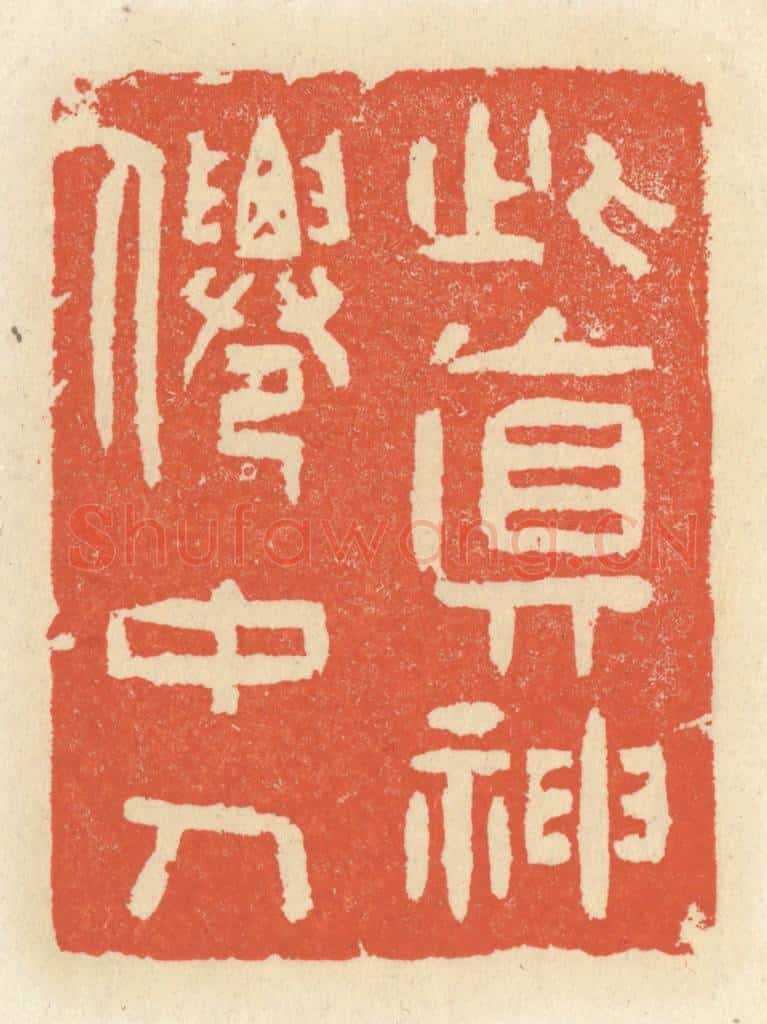 此真神
僊中人
Shufawang.CN